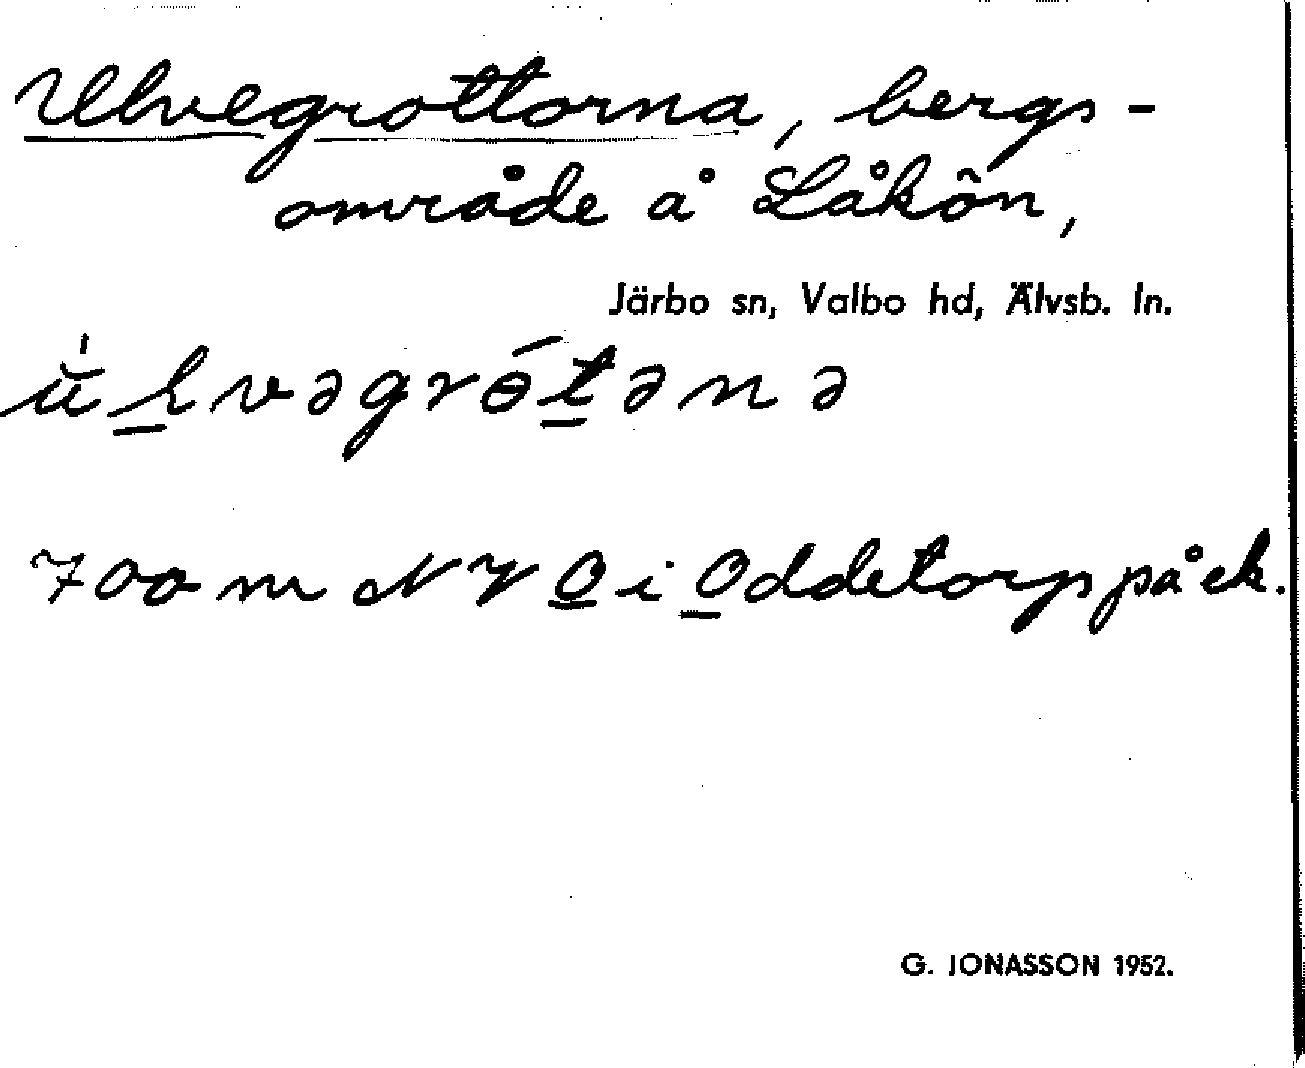 Ulvegrottorna, bergs-
område å Låkön,
Järbo sn, Valbo hd, Älvsb. ln.
700 m NV O i Oddetorp på ek.
G. JONASSON 1952.